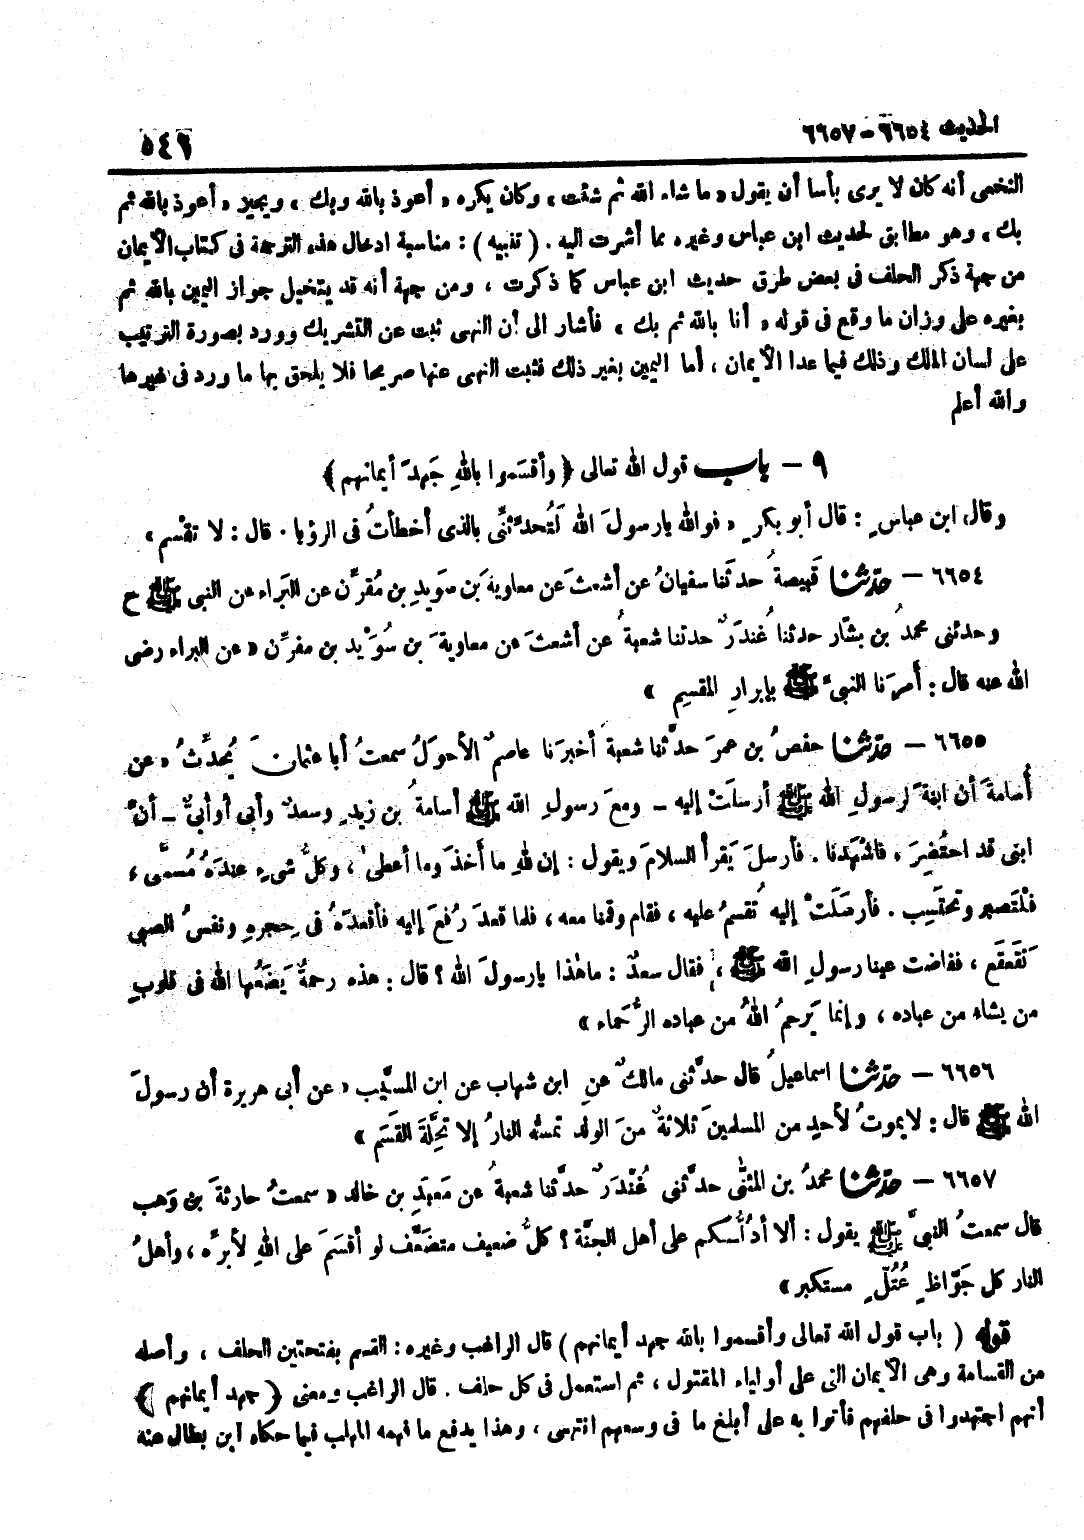 الحديث ٦٦٥٤ – ٦٦٥٧
٥٤١
النخعى أنه كان لا يرى بأسا أن يقول « ما شاء الله ثم شئت ، وكان يكره « أعوذ بالله وبك ، ويجيز « أعوذ بالله ثم
بك ، وهو مطابق لحديث ابن عباس وغيره مما أشرت اليه . ( تنبيه ) : مناسبة ادخال هذه الترجمة فى كتاب الأيمان
من جهة ذكر الحلف فى بعض طرق حديث ابن عباس كما ذكرت ، ومن جهة أنه قد يتخيل جواز اليمين بالله ثم
بغيره على وزان ما وقع فى قوله « أنا بالله ثم بك ، فأشار الى أن النهى ثبت عن التشريك وورد بصورة الترتيب
على لسان الملك وذلك فيما عدا الأيمان ، أما اليمين بغير ذلك فثبت النهى عنها صريحا فلا يلحق بها ما ورد فى غيرها
والله أعلم
٩ – باب قول الله تعالى ﴿ وأقسَموا باللهِ جَهدَ أيمانهم ﴾
وقال ابن عباسٍ : قال أبو بكرٍ « فوالله يارسولَ الله لَتُحدِّثنِّى بالذى أخطأتُ فى الرؤيا . قال : لا تقسْم »
٦٦٥٤ – حدّثنا قَبيصةُ حدثَنا سفيانُ عن أشعثَ عن معاويةَ بن سوَيدِ بن مُقرِّن عن البَراء عن النبى ﷺ ح
وحدثنى محمدُ بن بشّار حدثنا غُندَرٌ حدثنا شعبةُ عن أشعثَ عن معاويةَ بن سُوَيْد بن مقرِّن « عن البراء رضى
الله عنه قال : أمرَنا النبىُّ ﷺ بإبرارِ المقسِم »
٦٦٥٥ – حدّثنا حفصُ بن عمرَ حدَّثنا شعبةُ أخبرَنا عاصمٌ الأحوَلُ سمعتُ أبا عثمانَ يُحدِّثُ « عن
أسامةَ أن ابنةً لرسولِ الله ﷺ أرسلَتْ إليه – ومعَ رسولِ الله ﷺ أسامةُ بن زيدٍ وسعدٌ وأبي أو أُبيٌّ – أنَّ
ابنى قد احتُضِرَ ، فاشهَدنا . فأرسلَ يَقرأُ السلامَ ويقول : إن للهِ ما أخذَ وما أعطى ، وكلُّ شىءٍ عندَهُ مُسمًّى ،
فلْتَصبر وتحتَسِب . فأرسَلَتْ إليه تُقسمُ عليه ، فقام وقمنا معه ، فلما قعدَ رُفعَ إليه فأقعدَهُ فى حِجرهِ ونفسُ الصبى
تَقَعقَع ، ففاضت عينا رسولِ الله ﷺ ، فقال سعدٌ : ماهٰذا يارسولَ الله ؟ قال : هذه رحمةٌ يَضَعُها الله فى قلوبِ
من يشاء من عباده ، وإنما يَرحمُ اللهُ من عباده الرُّحماء »
٦٦٥٦ – حدّثنا اسماعيلُ قال حدَّثنى مالكٌ عنِ ابن شهاب عن ابن المسيَّب « عن أبى هريرة أن رسولَ
الله ﷺ قال : لايموتُ لأحدٍ من المسلمينَ ثلاثةٌ منَ الولد تمسُّه النارُ إلا تحِلَّةَ القسَم »
٦٦٥٧ – حدّثنا محمدُ بن المثنَّى حدَّثنى غُنْدَرٌ حدَّثنا شعبةُ عن مَعبَدِ بن خالد « سمعتُ حارثةَ بن وَهب
قال سمعتُ النبىَّ ﷺ يقول : ألا أدُلُّكم على أهل الجنَّة ؟ كلُّ ضعيف متضَعَّف لو أقسَمَ على اللهِ لأبرَّه ، وأهلُ
النار كل جَوّاظٍ عُتُلٍّ مستكبر »
قوله ( باب قول الله تعالى وأقسموا بالله جهد أيمانهم ) قال الراغب وغيره : القسم بفتحتين الحلف ، وأصله
من القسامة وهى الأيمان التى على أولياء المقتول ، ثم استعمل فى كل حلف . قال الراغب ومعنى ﴿ جهد أيمانهم ﴾
أنهم اجتهدوا فى حلفهم فأتوا به على أبلغ ما فى وسعهم انتهى ، وهذا يدفع ما فهمه المهلب فيما حكاه ابن بطال عنه